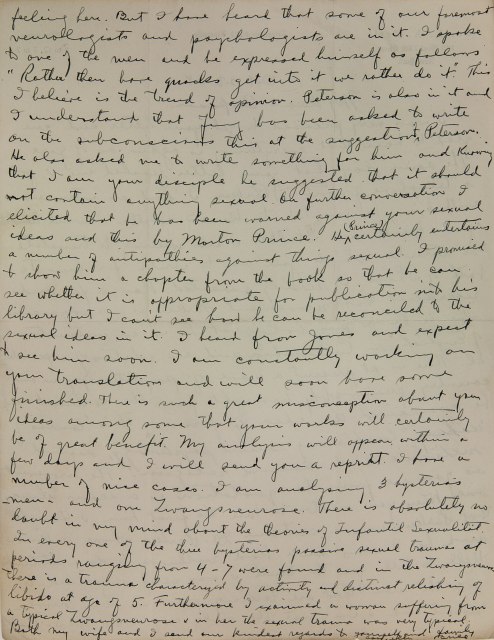 feeling here. But I have heard that some of our foremost
neurologists and psychologists are in it. I spoke
to one of the men and he expressed himself as follows
"Rather then have quacks get into it we rather do it" This
I believe is the trend of opinion. Peterson is also in it and
I understand that Jung has been asked to write
on the subconscious this at the suggestion of Peterson.
He also asked me to write something for him and Knowing
that I am your disciple he suggested that it should
not contain anything sexual. On further conversation I
elicited that he has been warned against your sexual
ideas and this by Morton Prince. He (Prince) certainly entertains
a number of antipathies against things sexual. I promised
to show him a chapter from the book so that he can
see whether it is appropriate for publication into his
library but I can't see how he can be reconciled to the
sexual ideas in it. I heard from Jones and expect
to see him soon. I am constantly working on
your translation and will soon have some
finished. There is such a great misconception about your
ideas among some that your works will certainly
be of great benefit. My analysis will appear within a
few days and I will send you a reprint. I have a
number of nice cases. I am analysing 3 hysterias
-men- and one Zwangsneurose. There is absolutely no
doubt in my mind about the theories of Infantil Sexualität
In every one of the three hysterias passive sexual traumas at
periods ranging from 4-7 were found and in the Zwangsneurose
there is a trauma characterized by activity and distinct relishing of
libido at age of 5. Furthermore I examined a woman suffering from
a typical Zwangsneurose & in her the sexual trauma was very typical
Both my wife and I send our kindest regards to yourself family